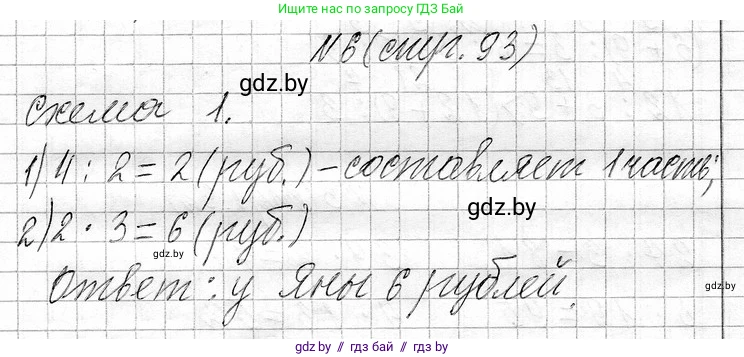 Ищите нас по запросу ГДЗ Бай
№6 (стр. 93)
gdz.by
Схема 1.
1) 4 : 2 = 2 (руб.) – составляет 1 часть;
gdz.by
2) 2 · 3 = 6 (руб.)
gdz.by
Ответ: у Яны 6 рублей.
gdz.by
gdz.by // гдз бай // гдз by